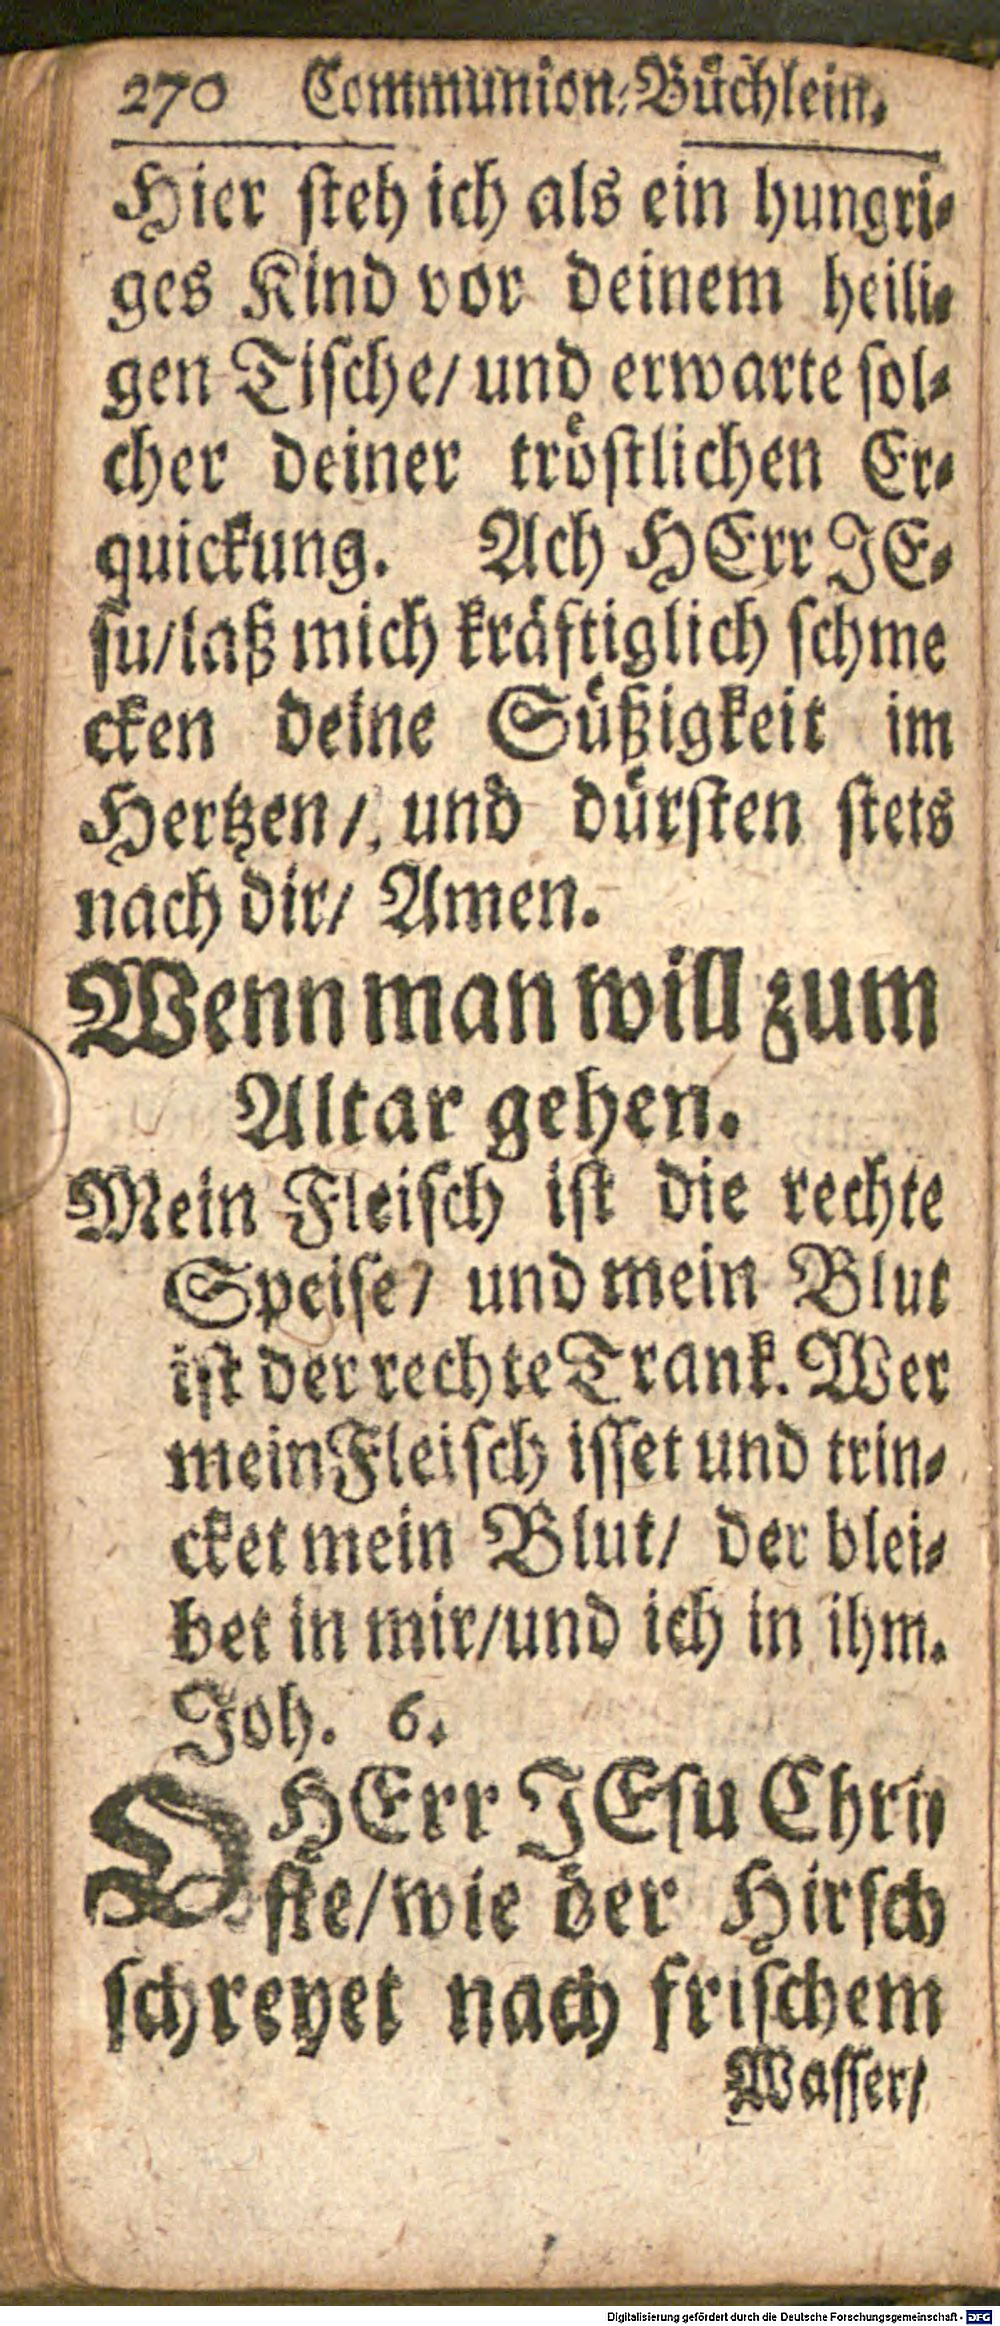 270 Communion-Büchlein.
Hier steh ich als ein hungri-
ges Kind vor deinem heili-
gen Tische/ und erwarte sol-
cher deiner tröstlichen Er-
quickung. Ach HErr JE-
su/laß mich kräftiglich schme
cken deine Süßigkeit im
Hertzen/, und dürsten stets
nach dir/ Amen.
Wenn man will zum
Altar gehen.
Mein Fleisch ist die rechte
Speise/ und mein Blut
ist der rechte Trank. Wer
mein Fleisch isset und trin-
cket mein Blut/ der blei-
bet in mir/und ich in ihm.
Joh. 6.
O HErr JEsu Chri-
ste/wie der Hirsch
schreyet nach frischem
Wasser/
Digitalisierung gefördert durch die Deutsche Forschungsgemeinschaft - DFG